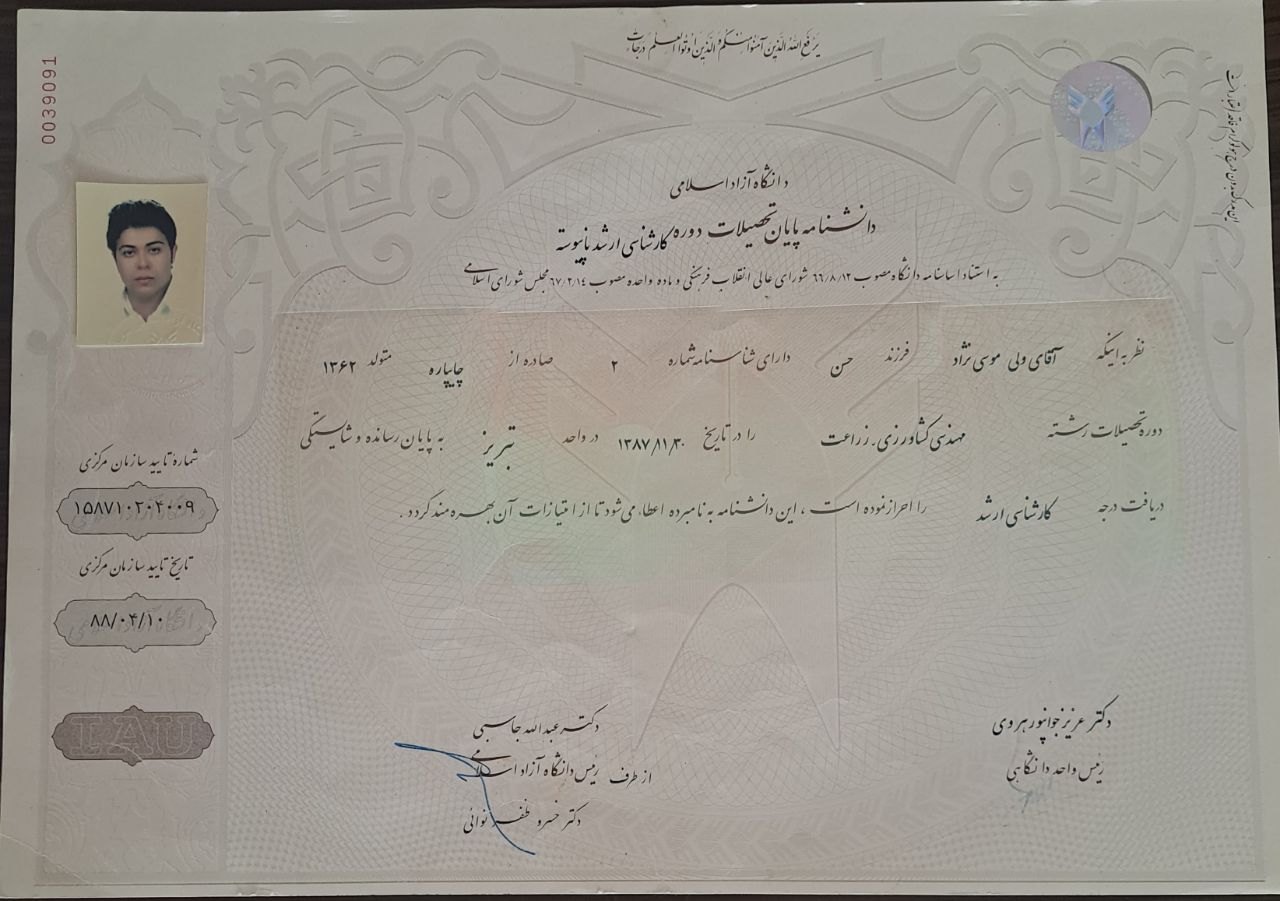 یرفع الله الذین آمنوا منکم والذین اوتوا العلم درجات
0039091
دانشگاه آزاد اسلامی
دانشنامه پایان تحصیلات دوره کارشناسی ارشد ناپیوسته
به استناد اساسنامه دانشگاه مصوب ۶۶/۸/۱۲ شورای عالی انقلاب فرهنگی و ماده واحده مصوب ۶۷/۲/۱۴ مجلس شورای اسلامی
نظر به اینکه آقای ولی موسی نژاد فرزند حسن دارای شناسنامه شماره ۲ صادره از چایپاره متولد ۱۳۶۲
دوره تحصیلات رشته مهندسی کشاورزی-زراعت را در تاریخ ۱۳۸۷/۱۱/۳۰ در واحد تبریز به پایان رسانده و شایستگی
دریافت درجه کارشناسی ارشد را احراز نموده است ، این دانشنامه به نامبرده اعطاء می‌شود تا از امتیازات آن بهره مند گردد .
شماره تایید سازمان مرکزی
۱۵۸۷۱۰۲۰۴۰۰۹
تاریخ تایید سازمان مرکزی
۸۸/۰۴/۱۰
IAU
دکتر عزیز جوانپور هروی
رئیس واحد دانشگاهی
دکتر عبدالله جاسبی
از طرف رئیس دانشگاه آزاد اسلامی
دکتر خسرو ظفر نوائی